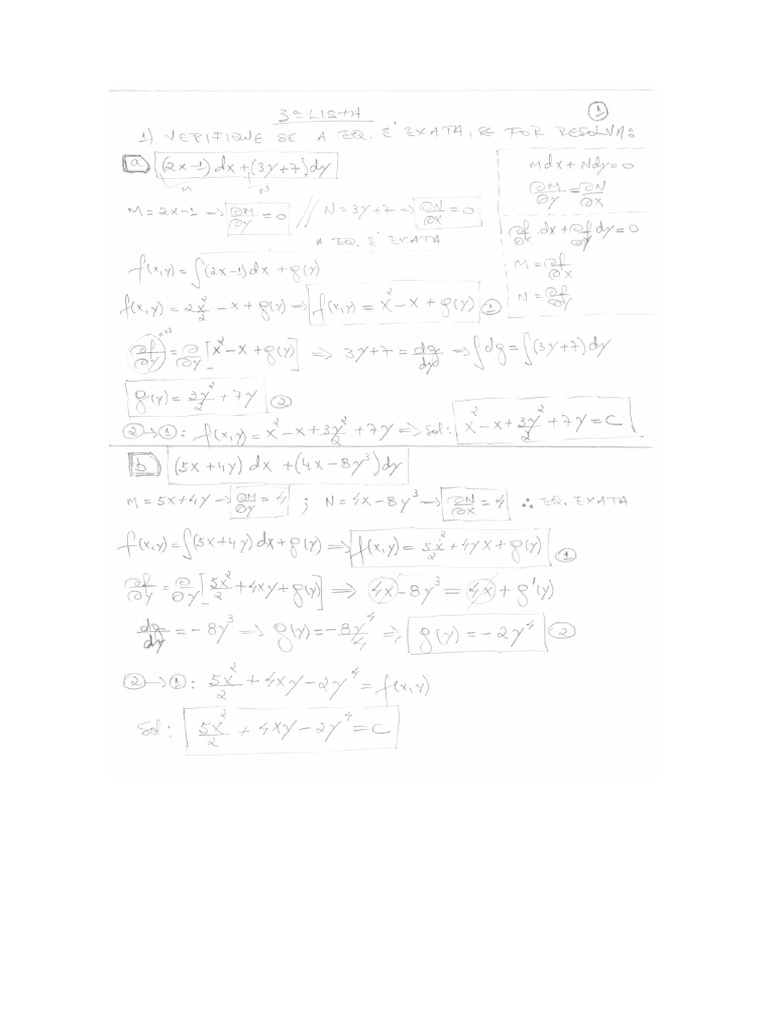 3ª LISTA ①
1) VERIFIQUE SE A EQ. É EXATA, SE FOR RESOLVA:
a) (2x-1)dx+(3y+7)dy
M N
Mdx+Ndy=0
∂M/∂y=∂N/∂x
M=2x-1→∂M/∂y=0 // N=3y+7→∂N/∂x=0
A EQ. É EXATA
∂f/∂x dx+∂f/∂y dy=0
M=∂f/∂x
N=∂f/∂y
f(x,y)=∫(2x-1)dx+g(y)
f(x,y)=2x²/2-x+g(y)→f(x,y)=x²-x+g(y) ①
∂f/∂y=∂/∂y[x²-x+g(y)]⇒3y+7=dg/dy⇒∫dg=∫(3y+7)dy
g(y)=3y²/2+7y ②
②→①: f(x,y)=x²-x+3y²/2+7y⇒Sol: x²-x+3y²/2+7y=C
b) (5x+4y)dx+(4x-8y³)dy
M=5x+4y→∂M/∂y=4 ; N=4x-8y³→∂N/∂x=4 ∴ EQ. EXATA
f(x,y)=∫(5x+4y)dx+g(y)⇒f(x,y)=5x²/2+4yx+g(y) ①
∂f/∂y=∂/∂y[5x²/2+4xy+g(y)]⇒4x-8y³=4x+g'(y)
dg/dy=-8y³⇒g(y)=-8y⁴/4⇒g(y)=-2y⁴ ②
②→①: 5x²/2+4xy-2y⁴=f(x,y)
Sol: 5x²/2+4xy-2y⁴=C